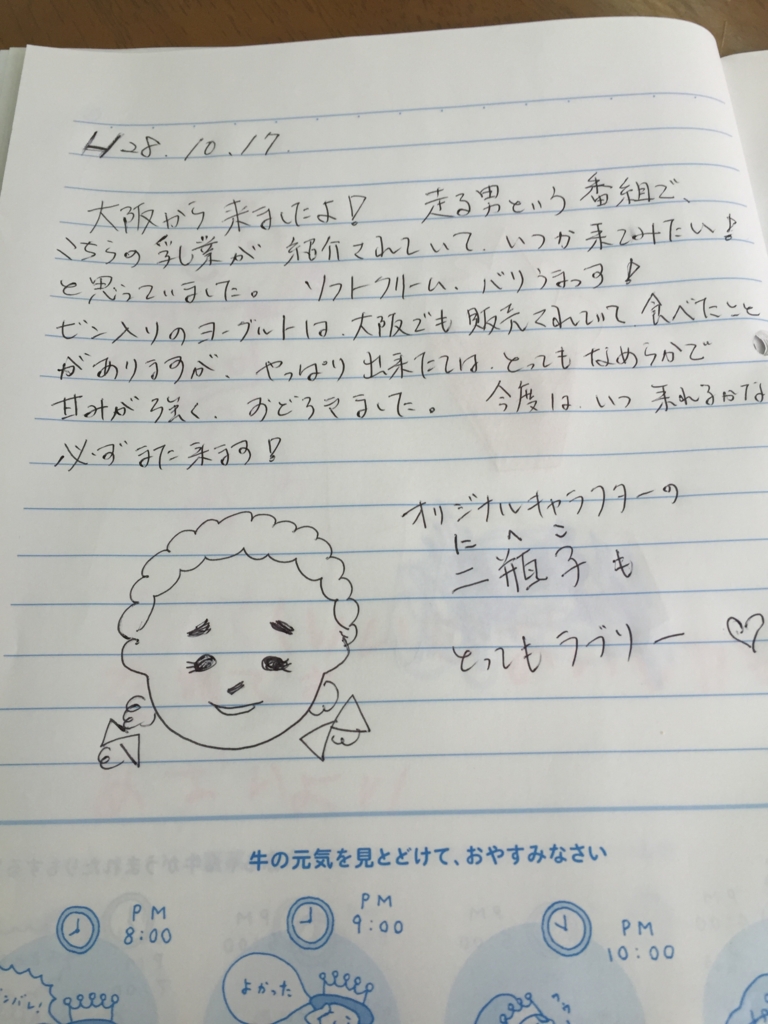 H28.10.17.
大阪から来ましたよ! 走る男という番組で、
こちらの乳業が紹介されていて、いつか来てみたい!
と思っていました。 ソフトクリーム、バリうまっす!
ビン入りのヨーグルトは、大阪でも販売されていて、食べたこと
がありますが、やっぱり出来たては、とってもなめらかで
甘みが強く、おどろきました。 今度は、いつ来れるかな
必ずまた来ます!
オリジナルキャラクターの
にへこ
二瓶子も
とってもラブリー♡
牛の元気を見とどけて、おやすみなさい
PM 8:00
PM 9:00
PM 10:00
よかった